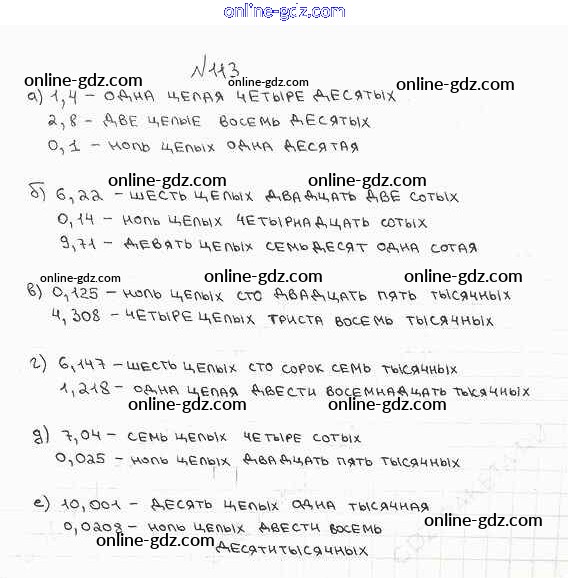 online-gdz.com
№113
online-gdz.com online-gdz.com online-gdz.com
а) 1,4 – одна целая четыре десятых
2,8 – две целые восемь десятых
0,1 – ноль целых одна десятая
online-gdz.com online-gdz.com
б) 6,22 – шесть целых двадцать две сотых
0,14 – ноль целых четырнадцать сотых
9,71 – девять целых семьдесят одна сотая
online-gdz.com online-gdz.com online-gdz.com
в) 0,125 – ноль целых сто двадцать пять тысячных
4,308 – четыре целых триста восемь тысячных
г) 6,147 – шесть целых сто сорок семь тысячных
1,218 – одна целая двести восемнадцать тысячных
online-gdz.com online-gdz.com
д) 7,04 – семь целых четыре сотых
0,025 – ноль целых двадцать пять тысячных
е) 10,001 – десять целых одна тысячная
online-gdz.com
0,0208 – ноль целых двести восемь
online-gdz.com
десятитысячных